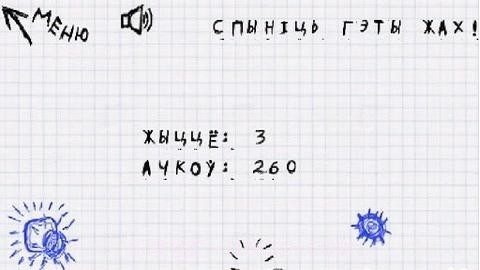 МЕНЮ
СПЫНІЦЬ ГЭТЫ ЖАХ!
ЖЫЦЦЁ: 3
АЧКОЎ: 260